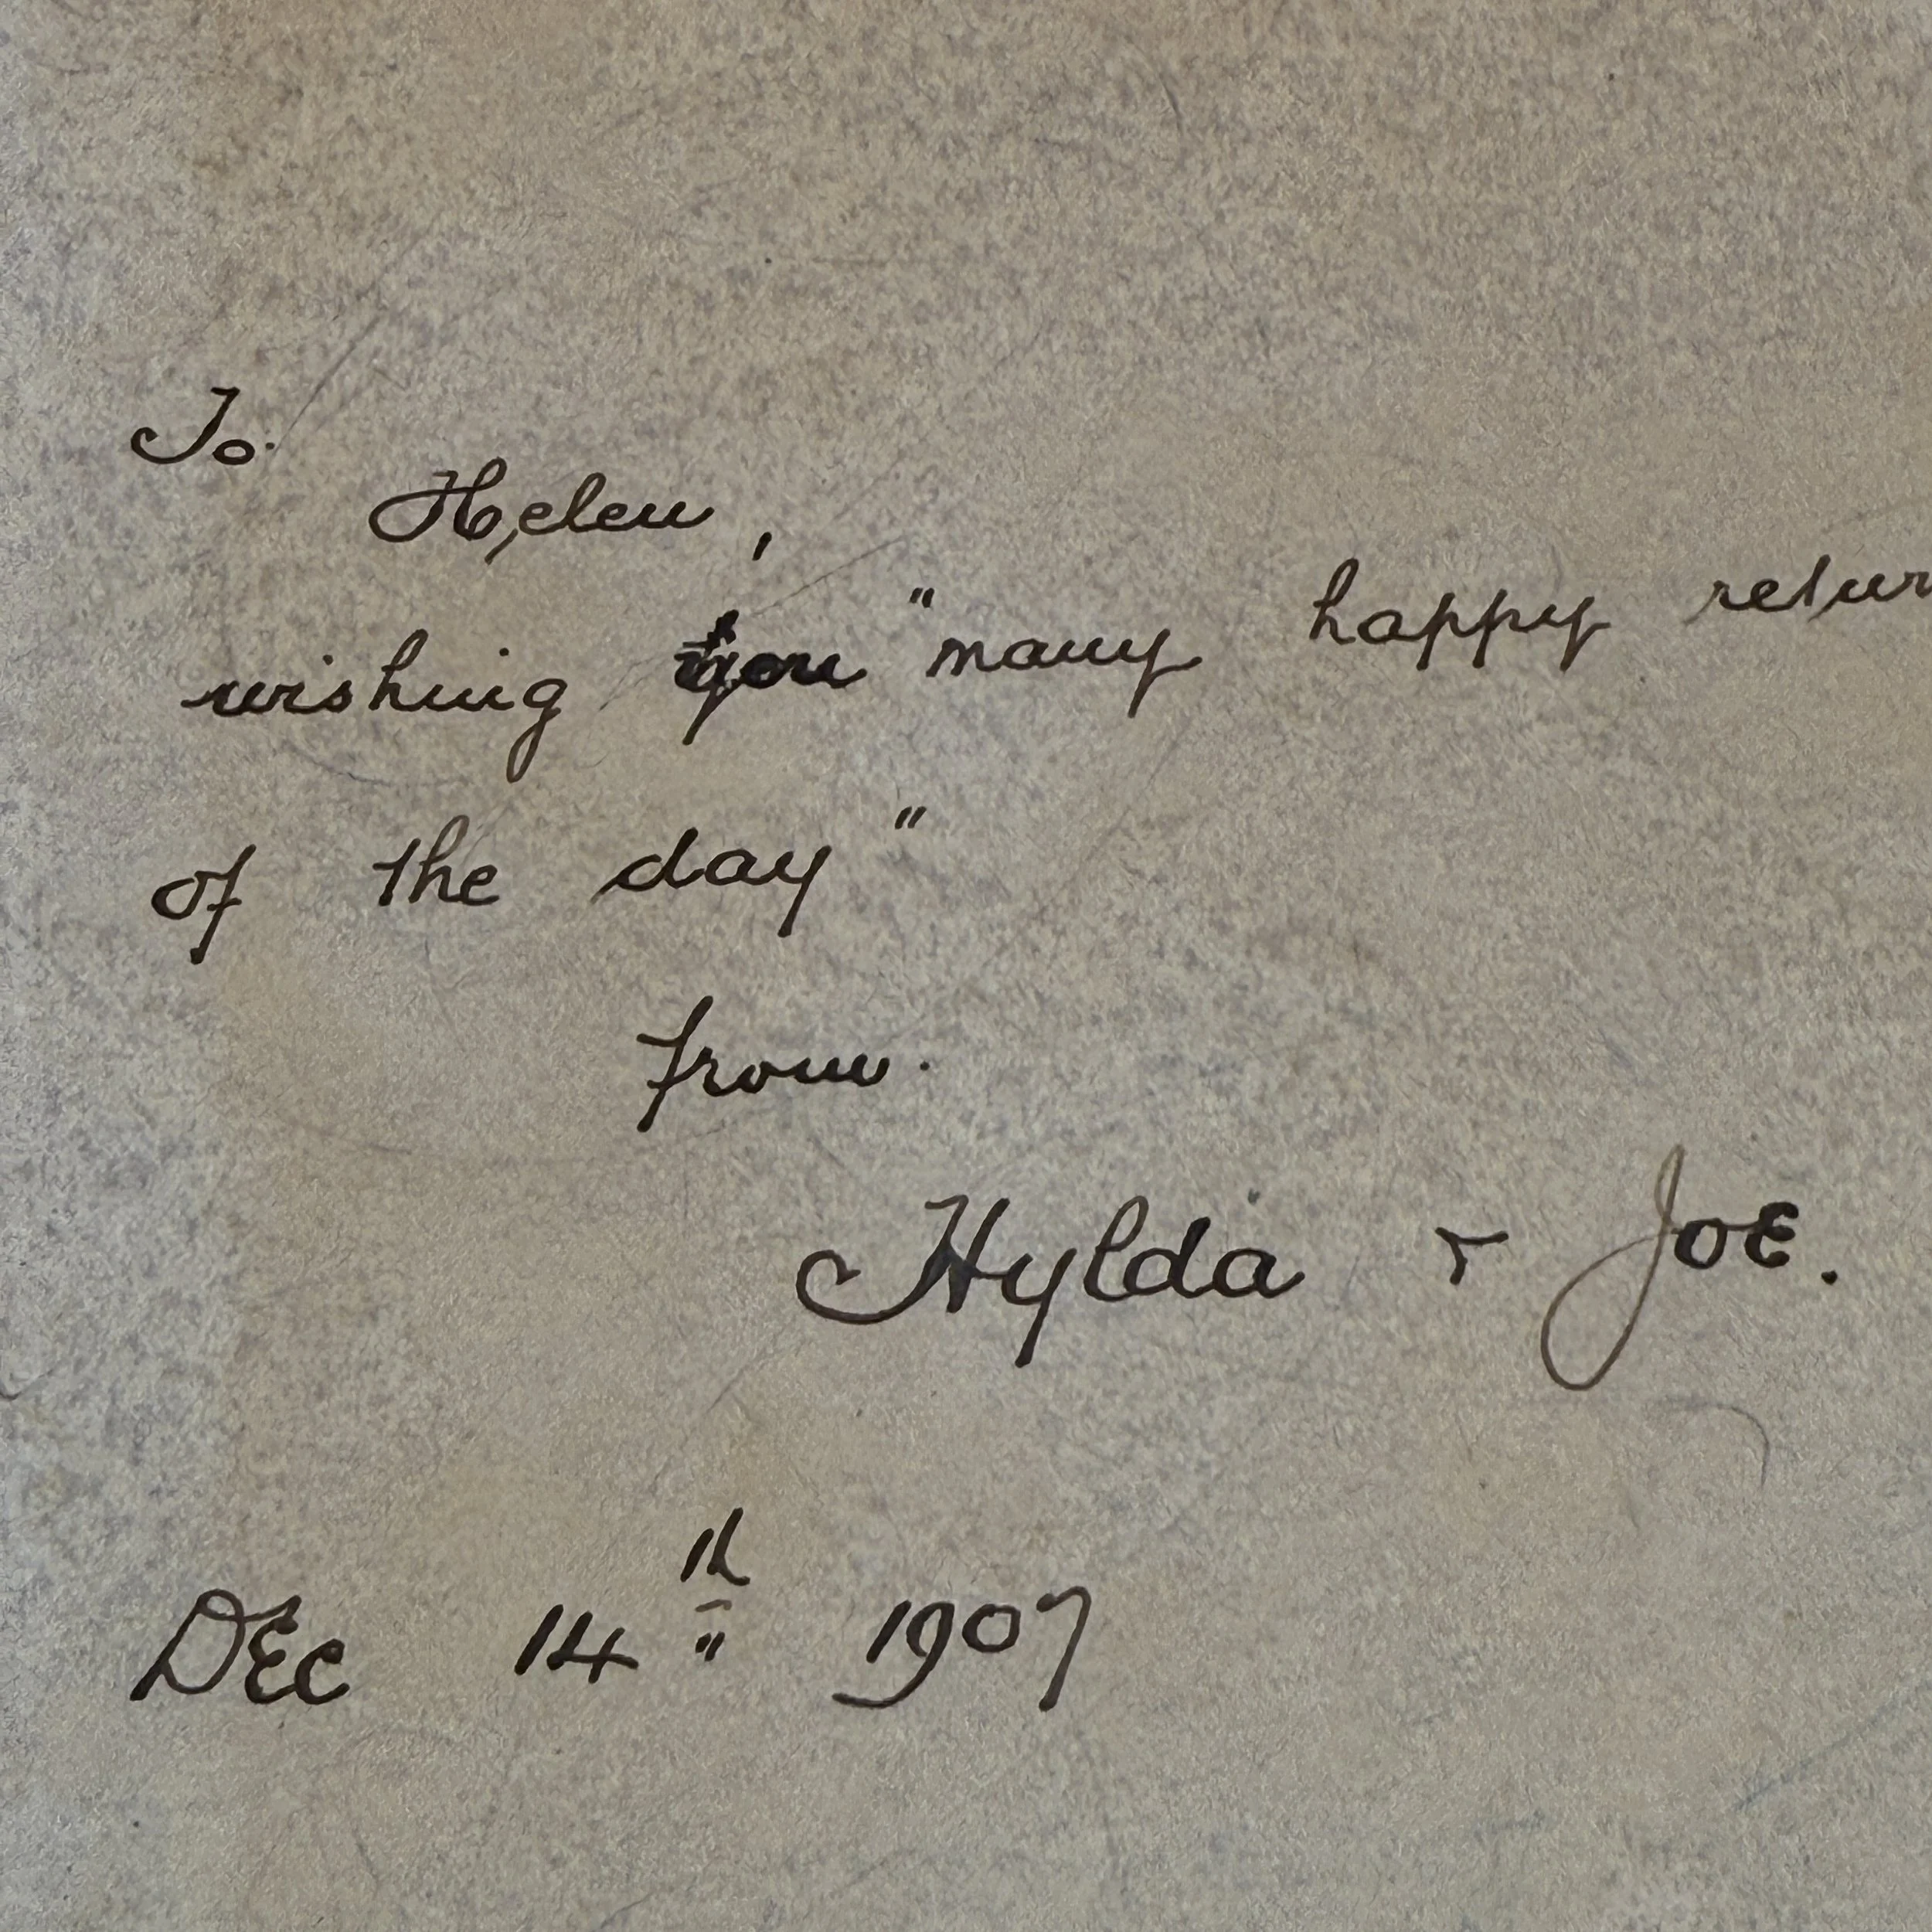 To.
Helen,
wishing you "many happy retur
of the day"
from.
Hylda & Joe.
Dec 14th 1907